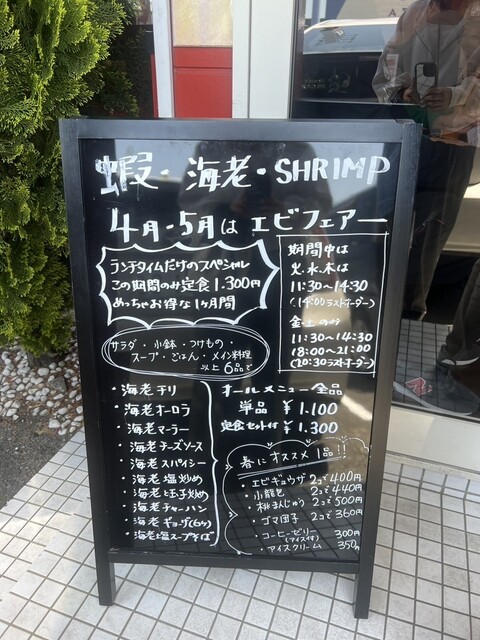 蝦・海老・SHRIMP
4月-5月は エビフェアー
ランチタイムだけのスペシャル
この期間のみ定食1.300円
めっちゃお得な1ヶ月間
期間中は
火.水.木は
11:30〜14:30
(14:00ラストオーダー)
金.土のみ
11:30〜14:30
18:00〜21:00
(20:30ラストオーダー)
サラダ・小鉢・つけもの・
スープ・ごはん・メイン料理
以上6品で
・海老チリ
・海老オーロラ
・海老マーラー
・海老チーズソース
・海老スパイシー
・海老塩炒め
・海老玉子炒め
・海老チャーハン
・海老ギョーザ(6ケ)
・海老塩スープそば
オールメニュー全品
単品 ¥1.100
定食セット付 ¥1.300
春にオススメ1品!!
・エビギョウザ 2コで400円
・小籠包 2コで440円
・桃まんじゅう 2コで500円
・ゴマ団子 2コで360円
・コーヒーゼリー 300円
(アイス付)
・アイスクリーム 350円